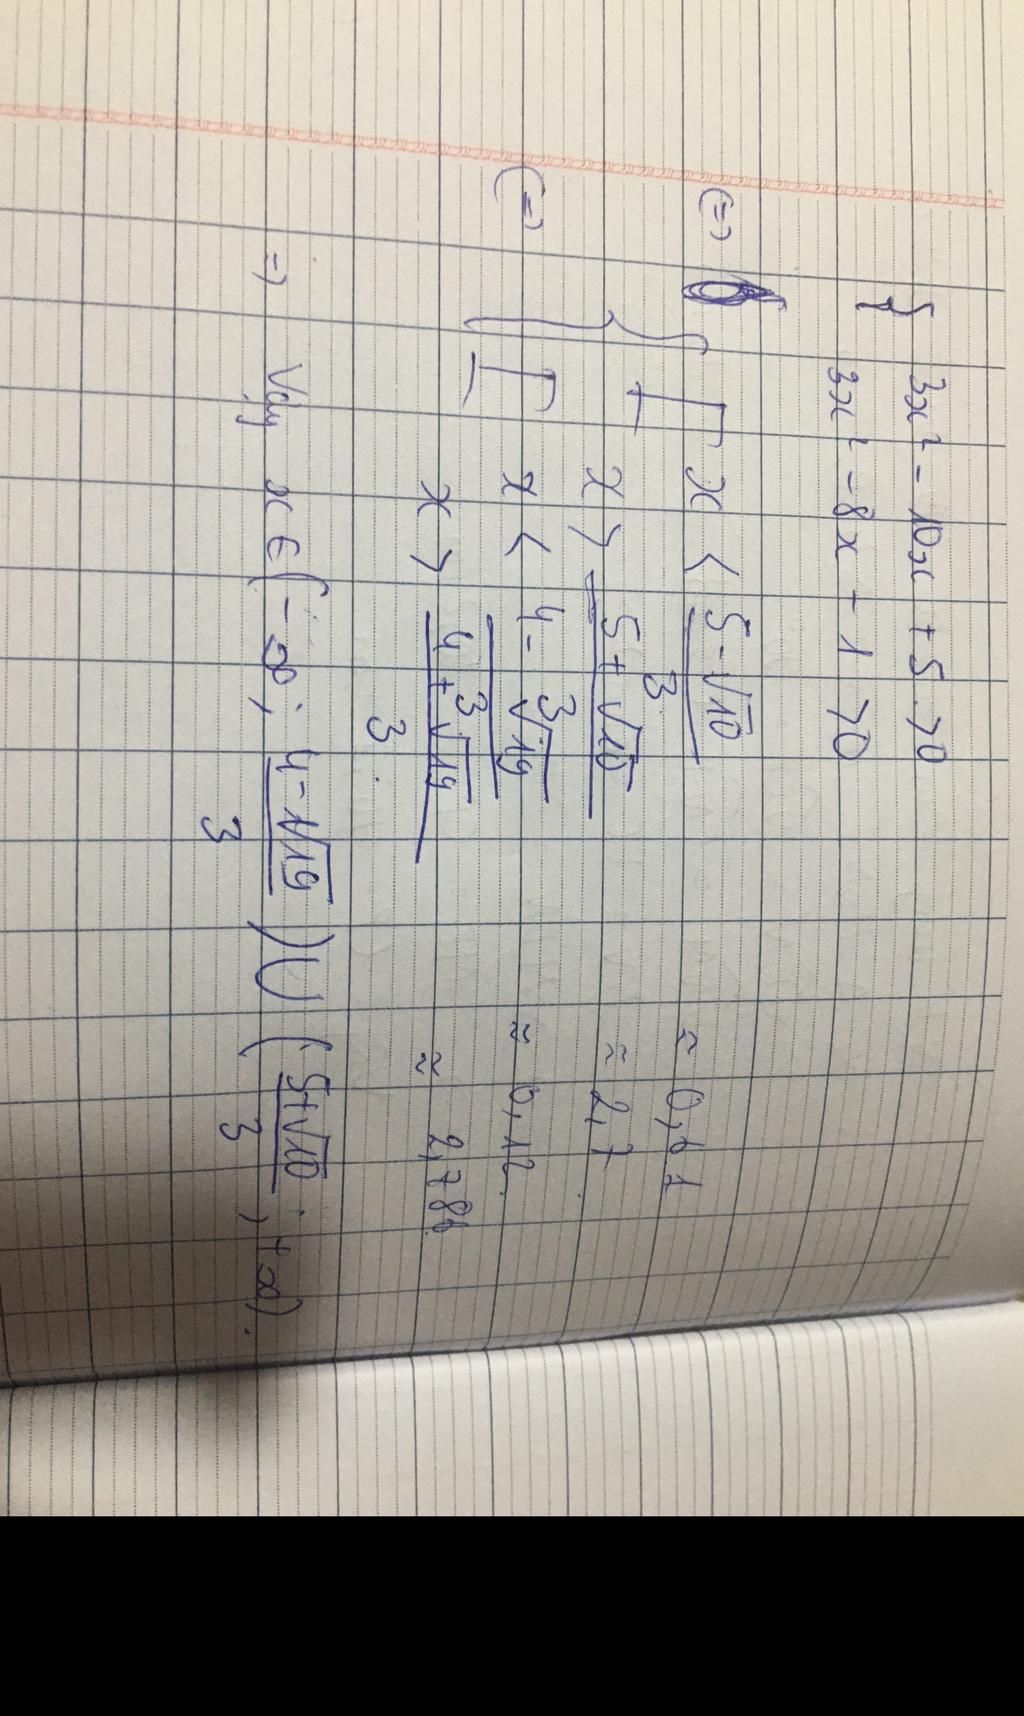 { 3x² - 10x + 5 > 0
3x² - 8x - 1 > 0
(=) { [ x < (5 - √10)/3 ≈ 0,61
x > (5 + √10)/3 ≈ 2,7
(=) [ x < (4 - √19)/3 ≈ 0,12
x > (4 + √19)/3 ≈ 2,786
=) Vậy x ∈ (-∞; (4 - √19)/3) ∪ ((5 + √10)/3; +∞).